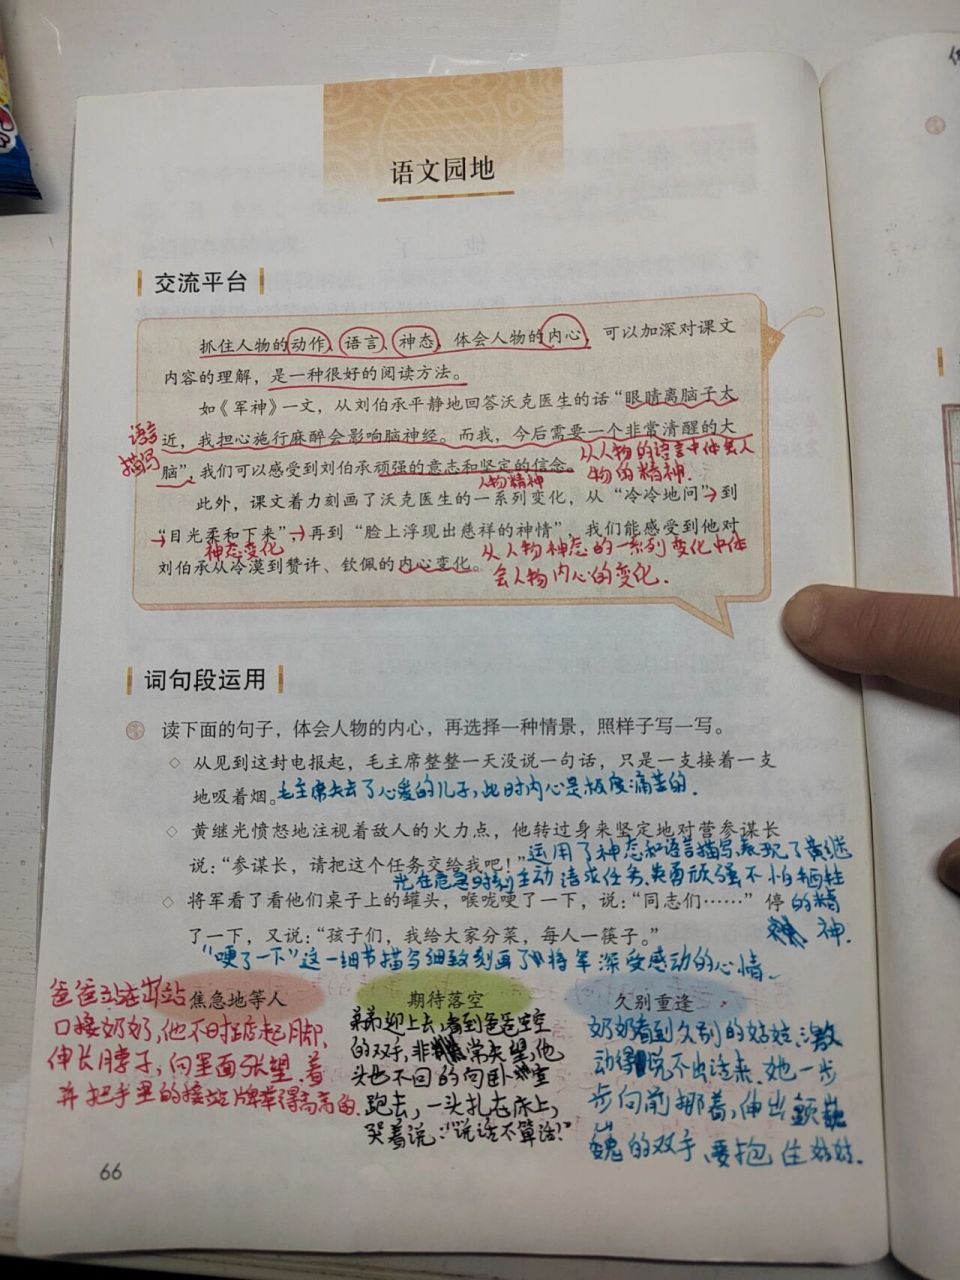 语文园地
交流平台
抓住人物的动作、语言、神态，体会人物的内心，可以加深对课文
内容的理解，是一种很好的阅读方法。
如《军神》一文，从刘伯承平静地回答沃克医生的话“眼睛离脑子太
近，我担心施行麻醉会影响脑神经。而我，今后需要一个非常清醒的大
脑”，我们可以感受到刘伯承顽强的意志和坚定的信念。
语言
描写
从人物的语言中体会人
物的精神.
人物精神
此外，课文着力刻画了沃克医生的一系列变化，从“冷冷地问”到
“目光柔和下来”，再到“脸上浮现出慈祥的神情”，我们能感受到他对
刘伯承从冷漠到赞许、钦佩的内心变化。
神态变化
从人物神态的一系列变化中体
会人物内心的变化.
词句段运用
读下面的句子，体会人物的内心，再选择一种情景，照样子写一写。
◇ 从见到这封电报起，毛主席整整一天没说一句话，只是一支接着一支
地吸着烟。毛主席失去了心爱的儿子，此时内心是极度痛苦的.
◇ 黄继光愤怒地注视着敌人的火力点，他转过身来坚定地对营参谋长
说：“参谋长，请把这个任务交给我吧！”运用了神态和语言描写，表现了黄继
光在危急时刻主动请求任务，英勇顽强不怕牺牲
的精
神.
◇ 将军看了看他们桌子上的罐头，喉咙哽了一下，说：“同志们……”停
了一下，又说：“孩子们，我给大家分菜，每人一筷子。”
“哽了一下”这一细节描写细致刻画了将军深受感动的心情.
焦急地等人
爸爸站在出站
口接奶奶，他不时踮起脚，
伸长脖子，向里面张望.着
并把手里的接站牌举得高高的.
期待落空
弟弟迎上去，看到爸爸空空
的双手，非常失望，他
头也不回的向卧室
跑去，一头扎在床上，
哭着说：“说话不算话！”
久别重逢
奶奶看到久别的姑姑，激
动得说不出话来.她一步
步向前挪着，伸出颤巍
巍的双手，要抱住姑姑.
66